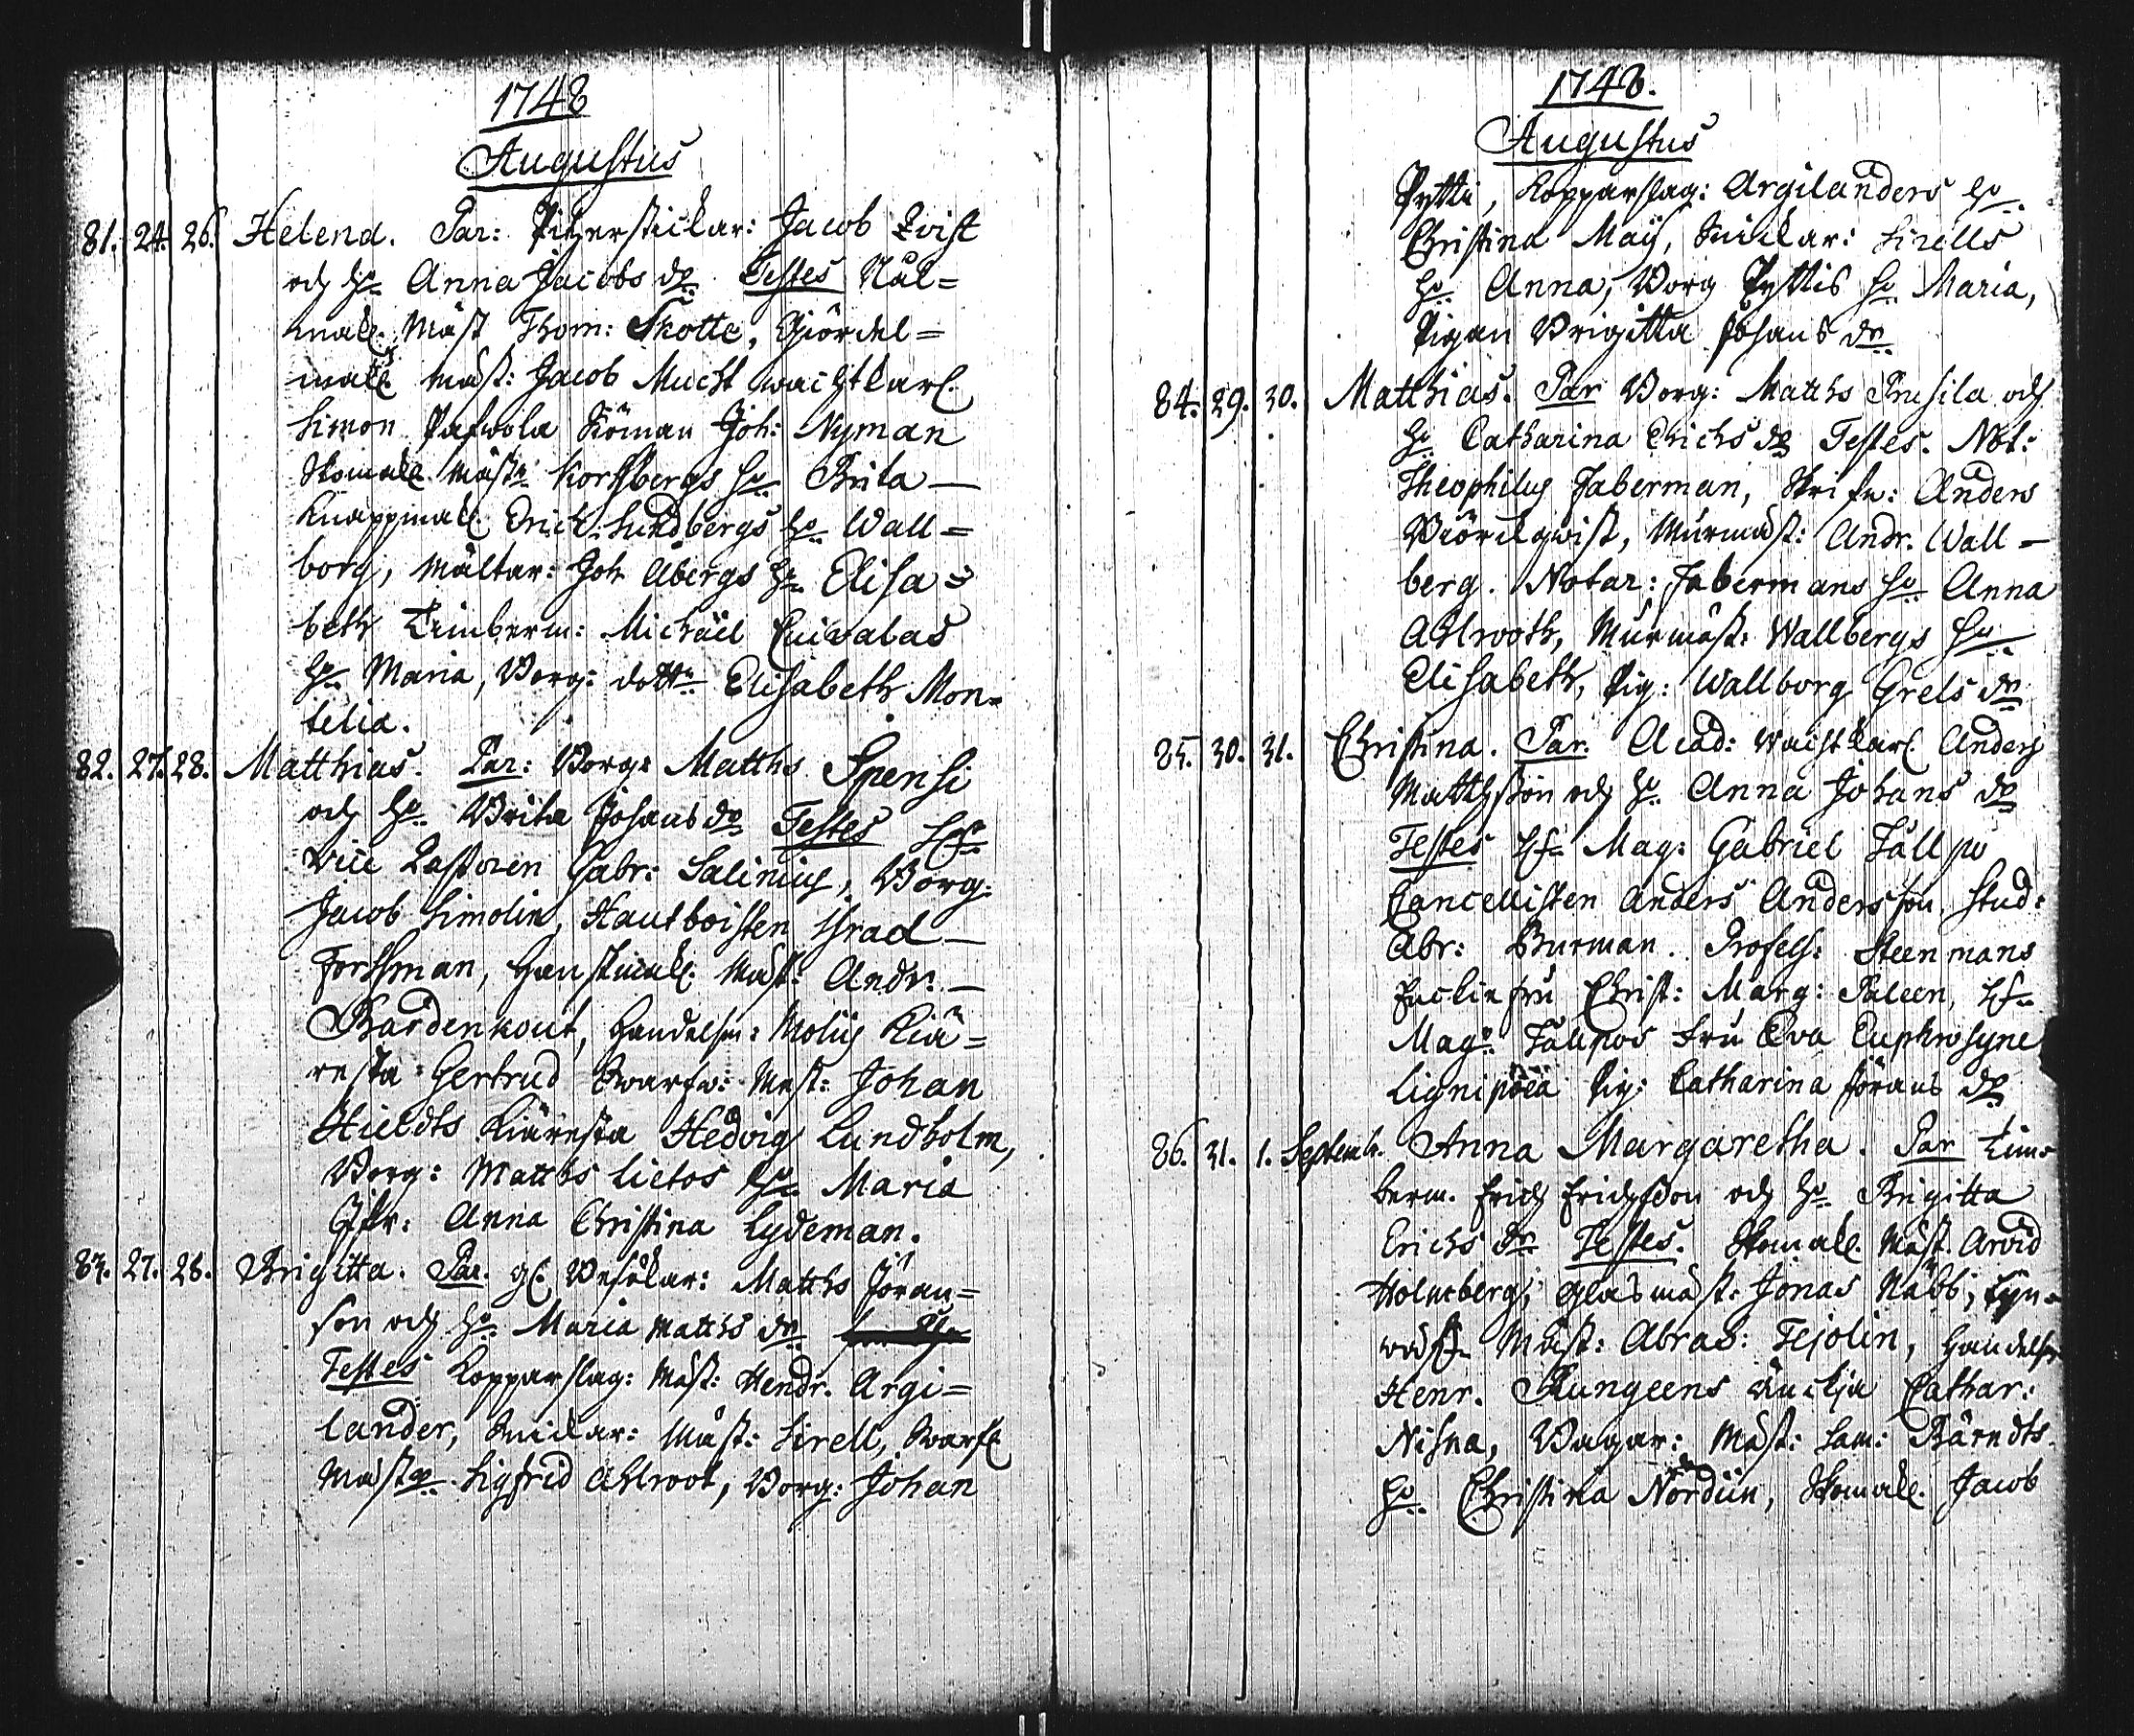 1748
Augustus
81. 24. 26. Helena. Par: Pitzerstickar: Jacob Qvist
och h:o Anna Jacobs dr. Testes Nål=
mak. Mäst Thom: Skotte, Giördel=
mak. mäst: Jacob Mucht wachtkarl.
Simon Pafwola Siöman Joh: Nyman
Skomak. Mäst: Korssbergs h:o Brita —
Knappmak. Erich Lundbergs h:o Wall=
borg, Mältar: Joh Åbergs h:o Elisa=
beth Timberm: Michaël Cuivalas
h:o Maria, Borg: dott:r Elisabeth Mon=
telia.
82. 27. 28. Matthias. Par: Borg: Matths Spensi
och h:o Brita Johans dr Testes H:r
Vice Pastoren Gabr: Salinius, Borg:
Jacob Simolin, Hautboisten Israel —
Forssman, Hanskmak. Mäst: Andr: —
Bardenhout, Handelsm: Moliis Kiä=
resta Gertrud Swarfw: Mäst: Johan
Hieldts Kiäresta Hedvig Lundholm,
Borg: Matths Lietos h:o Maria
Jfr: Anna Christina Lydeman.
83. 27. 28. Brigitta. Par. gl. Besökar: Matths Jöran=
son och h:o Maria Matths dr
Testes Kopparslag: Mäst: Hendr. Argi=
lander, Snickar: Mäst: Sirell, Swarf.
Mäster Sigfrid Ahlroot, Borg: Johan
1748.
Augustus
Pytti, Kopparslag: Argilanders h:o
Christina Maij, Snickar: Sirells
h:o Anna, Borg Pyttis h:o Maria,
Pigan Brigitta Johans dr
84. 29. 30. Matthias. Par Borg: Matths Prusila och
h:o Catharina Erichs dr Testes. Not:
Theophilus Faberman, Skrifw: Anders
Biörckqwist, Murmäst: Andr. Wall=
berg. Notar: Fabermans h:o Anna
Ahlrooth, Murmäst: Wallbergs h:o
Elisabeth, Pig: Wallborg Grels dr
85. 30. 31. Christina. Par. Acad: Wachtkarl Anders
Matthsson och h:o Anna Johans dr
Testes H:r Mag: Gabriel Tållpo
Cancellisten Anders Andersson. Stud:
Abr: Burman. Profess: Steenmans
Enckiefru Christ: Marg: Paleen, H:r
Mag:r Tållpos Fru Eva Euphrosyne
Lignipæa Pig: Catharina Jörans dr
86. 31. 1. Septemb. Anna Margaretha. Par Tim=
berm. Erich Erichsson och h:o Brigitta
Erichs dr Testes. Skomak. Mäst. Arvid
Holmberg, Glasmäst: Jonas Näbb,
Mäst: Abrah: Tejolin, Handelsm
Henr. Rungeens änckja Cathar:
Nisna, Bagar: Mäst: Sam: Bärndts
h:o Christina Nordiin, Skomak. Jacob